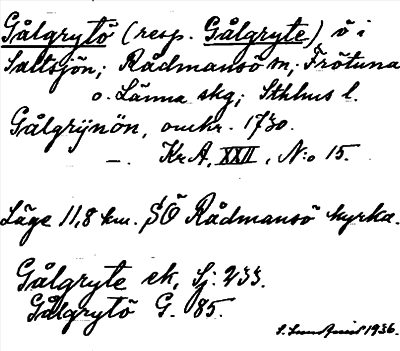 Gålgrytö (resp. Gålgryte) ö i
Saltsjön; Rådmansö sn; Frötuna
o. Länna skg; Sthlms l.
Gålgrÿnön, omkr. 1730.
—„— Kr A, XXII, N:o 15.
Läge 11,8 km. SÖ Rådmansö kyrka.
Gålgryte ek, Sj. 233.
Gålgrytö G. 85.
1936.